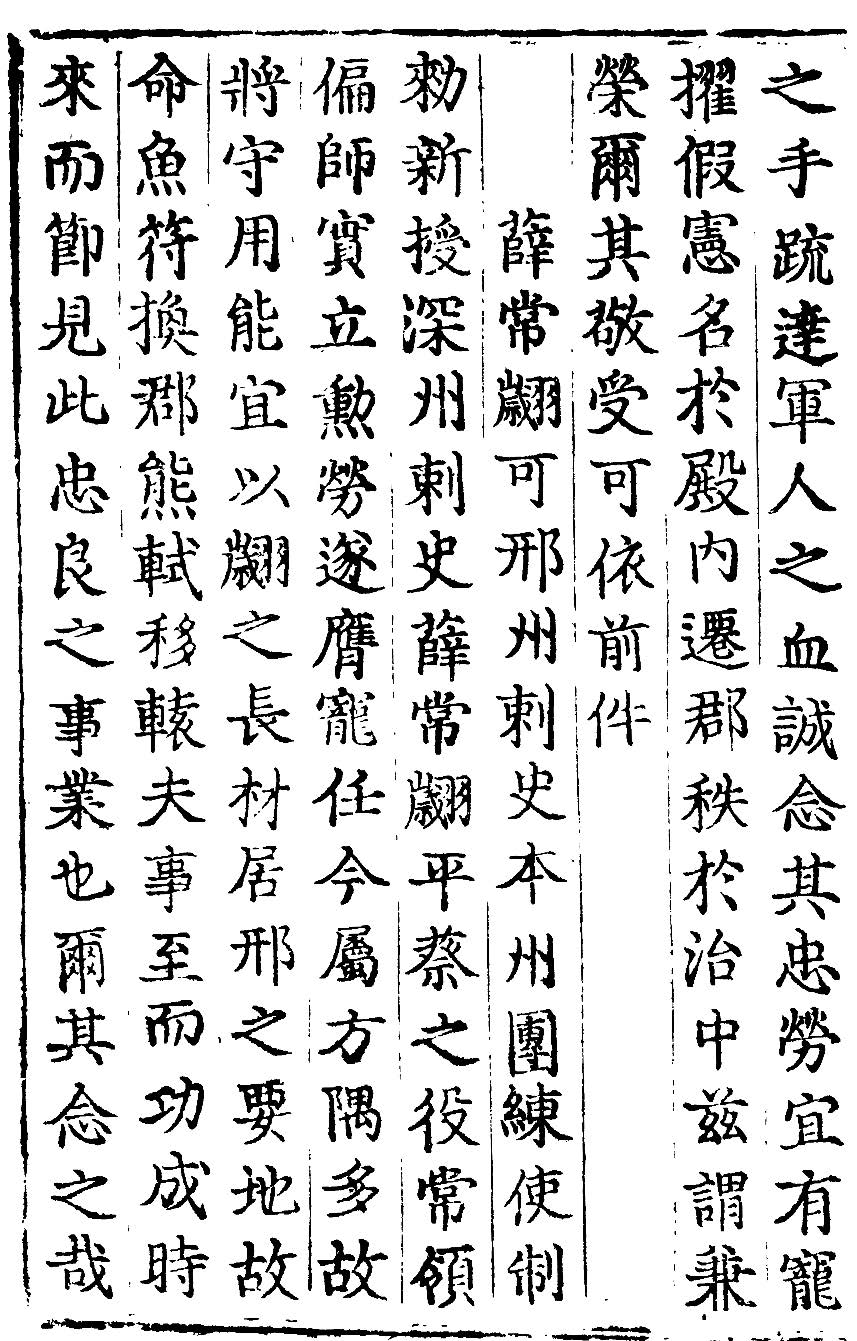 之手疏達軍人之血誠念其忠勞宜有寵
擢假憲名於殿内遷郡秩於治中兹謂兼
榮爾其敬受可依前件
薛常翽可邢州刺史本州團練使制
勑新授深州刺史薛常翽平蔡之役常領
偏師實立勲勞遂膺寵任今屬方隅多故
將守用能宜以翽之長材居邢之要地故
命魚符換郡熊軾移轅夫事至而功成時
來而節見此忠良之事業也爾其念之哉